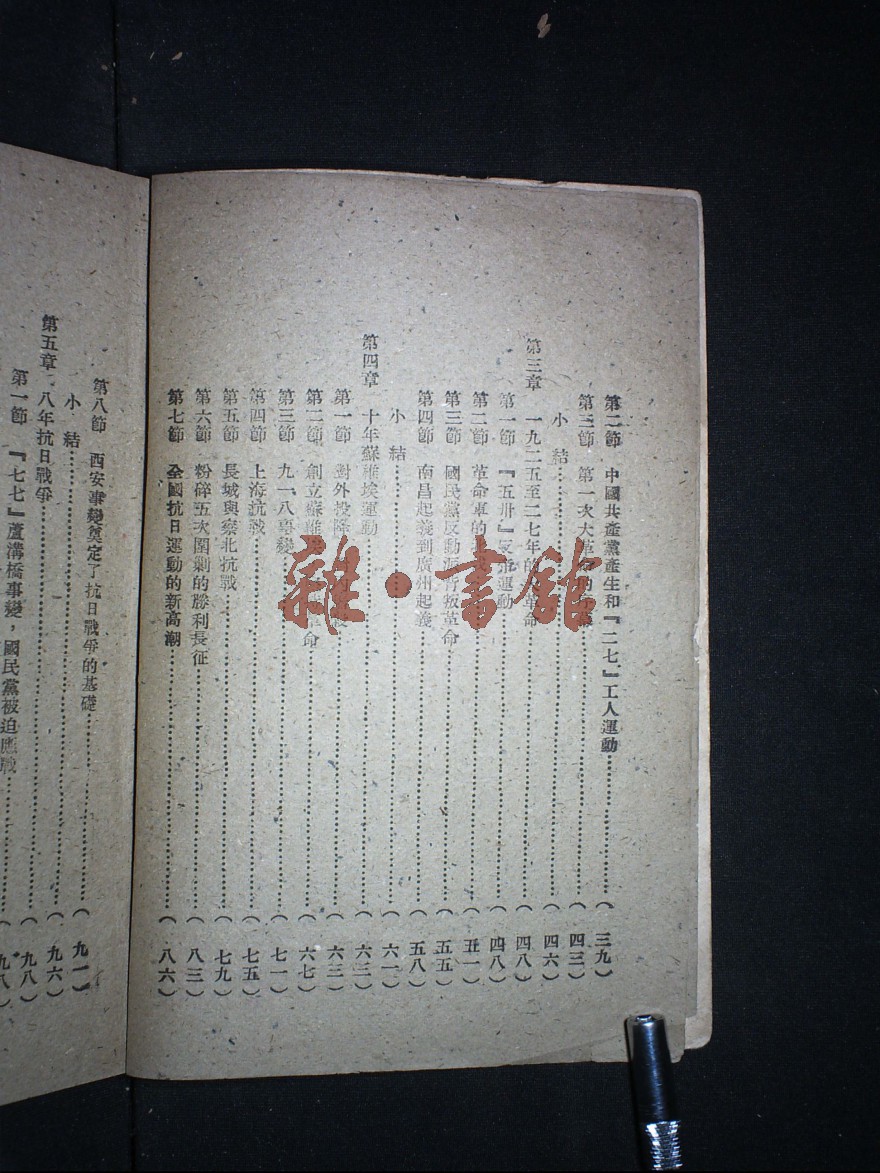 第二節 中國共產黨產生和『二七』工人運動(三九)
第三節 第一次大革命的(四三)
小結(四六)
第三章 一九二五至二七年的大革命(四八)
第一節 『五卅』反帝運動(四八)
第二節 革命軍的(五一)
第三節 國民黨反動派背叛革命(五五)
第四節 南昌起義到廣州起義(五八)
小結(六一)
第四章 十年蘇維埃運動(六三)
第一節 對外投降(六三)
第二節 創立蘇維埃 革命(六七)
第三節 九一八事變(七一)
第四節 上海抗戰(七五)
第五節 長城與察北抗戰(七九)
第六節 粉碎五次圍剿的勝利長征(八三)
第七節 全國抗日運動的新高潮(八六)
第八節 西安事變奠定了抗日戰爭的基礎(九一)
小結(九六)
第五章 八年抗日戰爭(九八)
第一節 『七七』蘆溝橋事變,國民黨被迫應戰(九八)
雜·書館